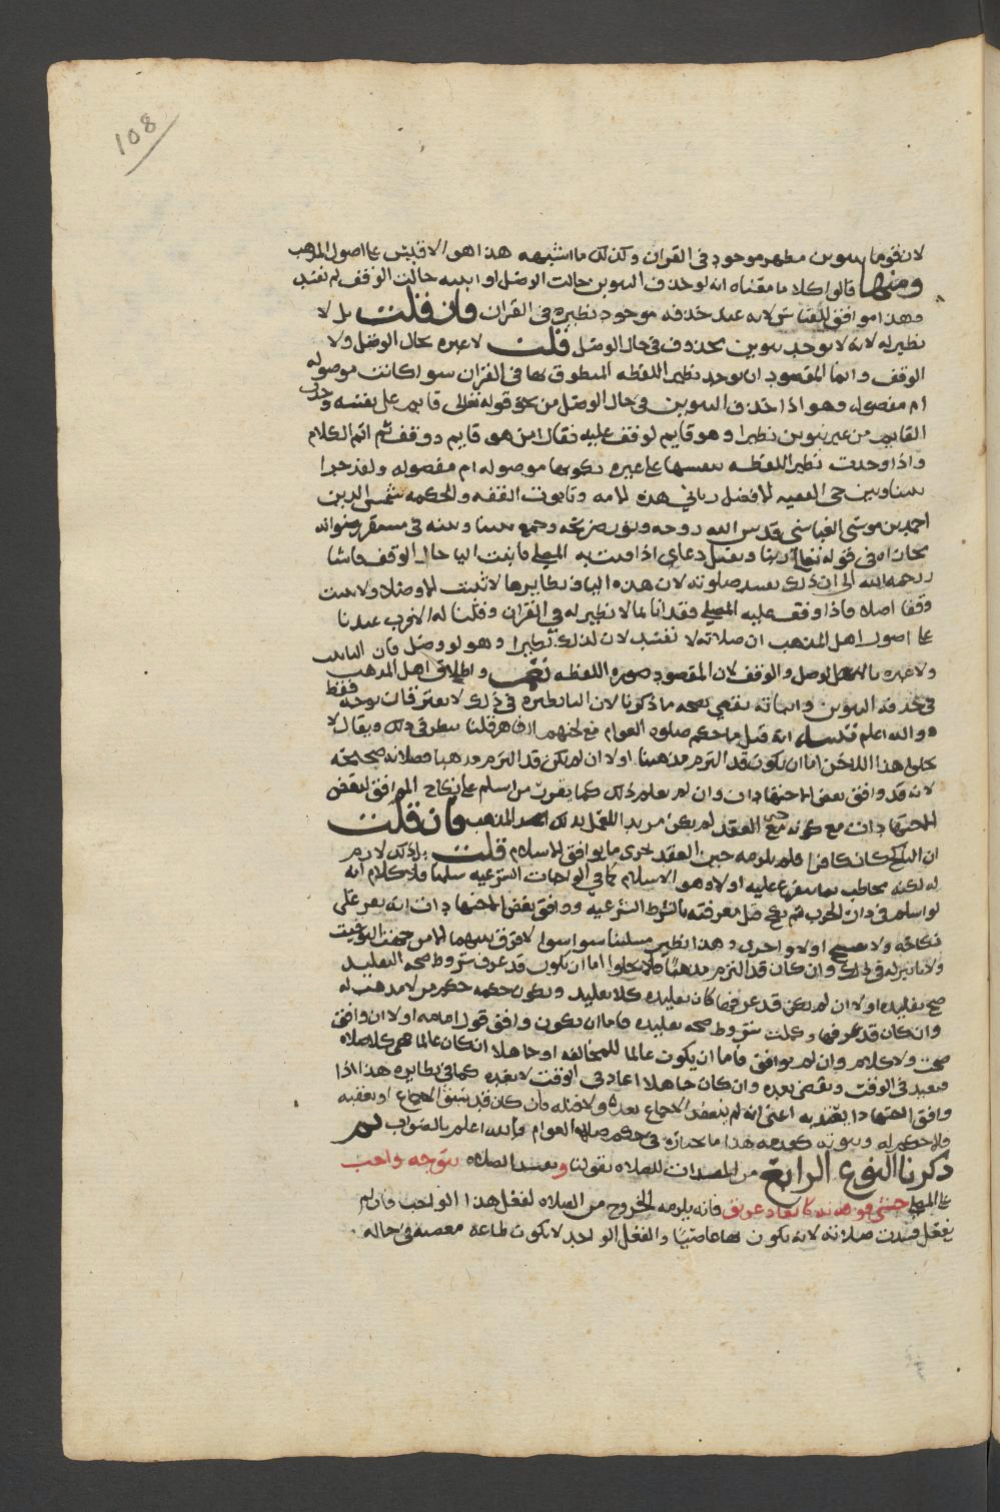 108
لان قوما بتنوين مطهر موجود في القران وكذلك ما اشبهه هذا هو الاقيس على اصول المذهب
ومنها قالوا كلاما معناه انه لو حذف التنوين حالت الوصل او اثبته حالت الوقف لم تفسد
وهذا موافق للقياس لانه عند حذفه موجود نظيره في القران فان قلت بل لا
نظير له لانه لا يوجد تنوين محذوف في حال الوصل قلت لا عبره بحال الوصل ولا
الوقف وانما المقصود ان يوجد نظير اللفظه المنطوق بها في القران سوا كانت موصوله
ام مفصوله وهو اذا حذف التنوين في حال الوصل من نحو قوله تعالى قايم على نفسه وجدت
القايم من غير تنوين نظيرا وهو قايم لو وقف عليه فقال امن هو قايم ووقف ثم اتم الكلام
واذا وجدت نظير اللفظه بنفسها فلا عبره بكونها موصوله ام مفصوله ولقد جرا
بيننا وبين حي الفقيه الافضل رباني هذه الامه وتابوت الفقه والحكمه شمس الدين
احمد بن موسى العباسي قدس الله روحه ونور ضريحه وجمع بيننا وبينه في مستقر رضوانه
مجاراه في قوله تعالى ربنا وتقبل دعاي اذا اتت به المصلي فاثبت اليا حال الوقف فاشا
رحمه الله الى ان ذلك يفسد صلوته لان هذه اليا ونظايرها لا تثبت الا وصلا ولا تثبت
وقفا اصلا فاذا وقف عليه المصلي فقد اتا بما لا نظير له في القران وقلنا له الاقرب عندنا
على اصول اهل المذهب ان صلاته لا تفسد لان لذلك نظيرا وهو لو وصل فان اليا تثبت
ولا عبره بالوصل والوقف لان المقصود صوره اللفظه نعم واطلاق اهل المذهب
في حذف التنوين واثباته يقضي بصحه ما ذكرنا لان اليا نظيره في ذلك لا يفترقان بوجه فقط
والله اعلم
لانه قد وافق بعض الاجتهادات وان لم يعلم ذلك كما يقرت من اسلم على نكاح الموافق لبعض
الاجتهادات مع كونه حين العقد لم يكن مريدا للعمل بذلك المذهب فان قلت
ان الناكح كان كافرا فلم يلزمه حين العقد تحري ما يوافق الاسلام قلت
له لكنه مخاطب بما يتفرع عليه اولا وهو الاسلام كما في الواجبات الشرعيه سلمنا فلا كلام انه
لو اسلم في دار الحرب ثم نكح قبل معرفته بالشروط الشرعيه ووافق بعض الاجتهادات انه يقر على
نكاحه
ولا تاثير له في ذلك وان كان قد التزم مذهبا فلا يخلوا اما ان يكون قد عرف شروط صحه التقليد
صح تقليده اولا ان لم يكن قد عرفها كان تقليده كلا تقليد ويكون حكمه حكم من لا مذهب له
وان كان قد عرفها وكملت شروط صحه تقليده فاما ان يكون وافق قول امامه اولا ان وافق
صحت ولا كلام وان لم يوافق فاما ان يكون عالما للمخالفه او جاهلا ان كان عالما فهي كلا صلاه
فيعيد في الوقت ويقضي بعده وان كان جاهلا اعاد في الوقت لا بعده كما في نظايره هذا اذا
وافق اجتهادا يعتد به اعني انه لم ينعقد الاجماع بعده ولا قبله فان كان قد سبق الاجماع او تعقبه
فلا حكم له وثبوته كعدمه هذا ما نختاره في حكم صلاه العوام والله اعلم بالصواب ثم
ذكرنا النوع الرابع من المفسدات للصلاه بقولنا وتفسد الصلاه بتوجه واجب
على المصلي خشي فوته كانقاذ غريق فانه يلزمه الخروج من الصلاه لفعل هذا الواجب فان لم
يفعل فسدت صلاته لانه يكون بها عاصيا والفعل الواحد لا يكون طاعة معصية في حاله